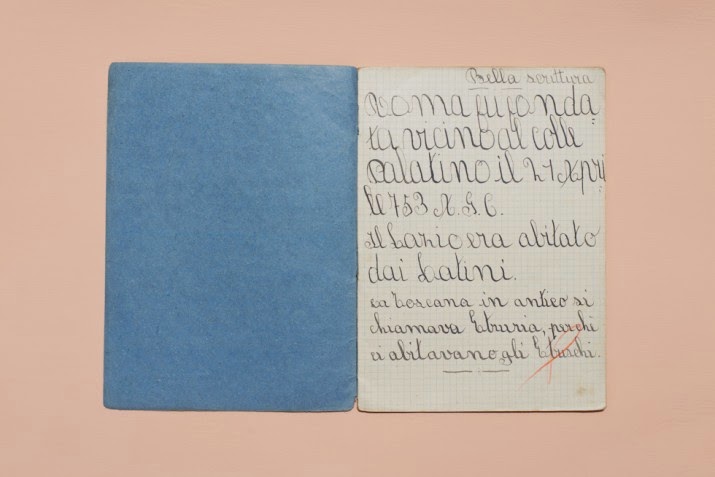 Bella scrittura
Roma fu fonda=
ta vicino al colle
Palatino il 21 Apri
le 753 A. G. C.
Il Lazio era abitato
dai Latini.
La Toscana in antico si
chiamava Etruria, perchè
ci abitavano gli Etruschi.